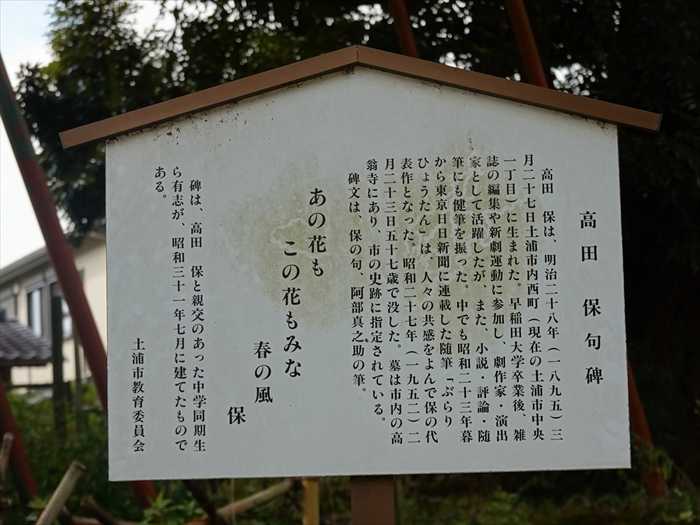 高田 保句碑
高田 保は、明治二十八年(一八九五)三
月二十七日土浦市内西町(現在の土浦市中央
一丁目)に生まれた。早稲田大学卒業後、雑
誌の編集や新劇運動に参加し、劇作家・演出
家として活躍したが、また、小説・評論・随
筆にも健筆を振った。中でも昭和二十三年暮
から東京日日新聞に連載した随筆「ぶらり
ひょうたん」は、人々の共感をよんで保の代
表作となった。昭和二十七年(一九五二)二
月二十三日五十七歳で没した。墓は市内の高
翁寺にあり、市の史跡に指定されている。
碑文は、保の句、阿部真之助の筆。
あの花も
この花もみな
春の風
保
碑は、高田 保と親交のあった中学同期生
ら有志が、昭和三十一年七月に建てたもので
ある。
土浦市教育委員会